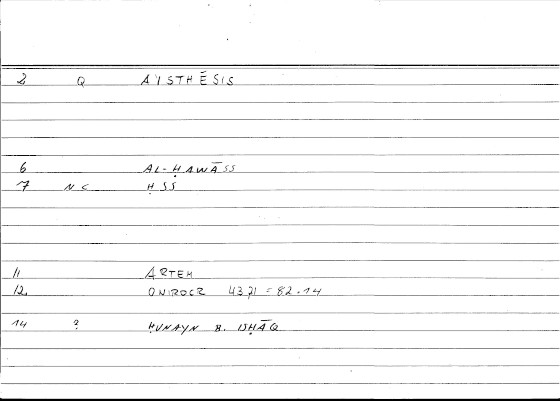 2 Q AISTHĒSIS
6 AL-ḤAWĀSS
7 NC ḤSS
11 ARTEM
12 ONIROCR 43,21 = 82.14
14 ? ḤUNAYN B. ISḤĀQ